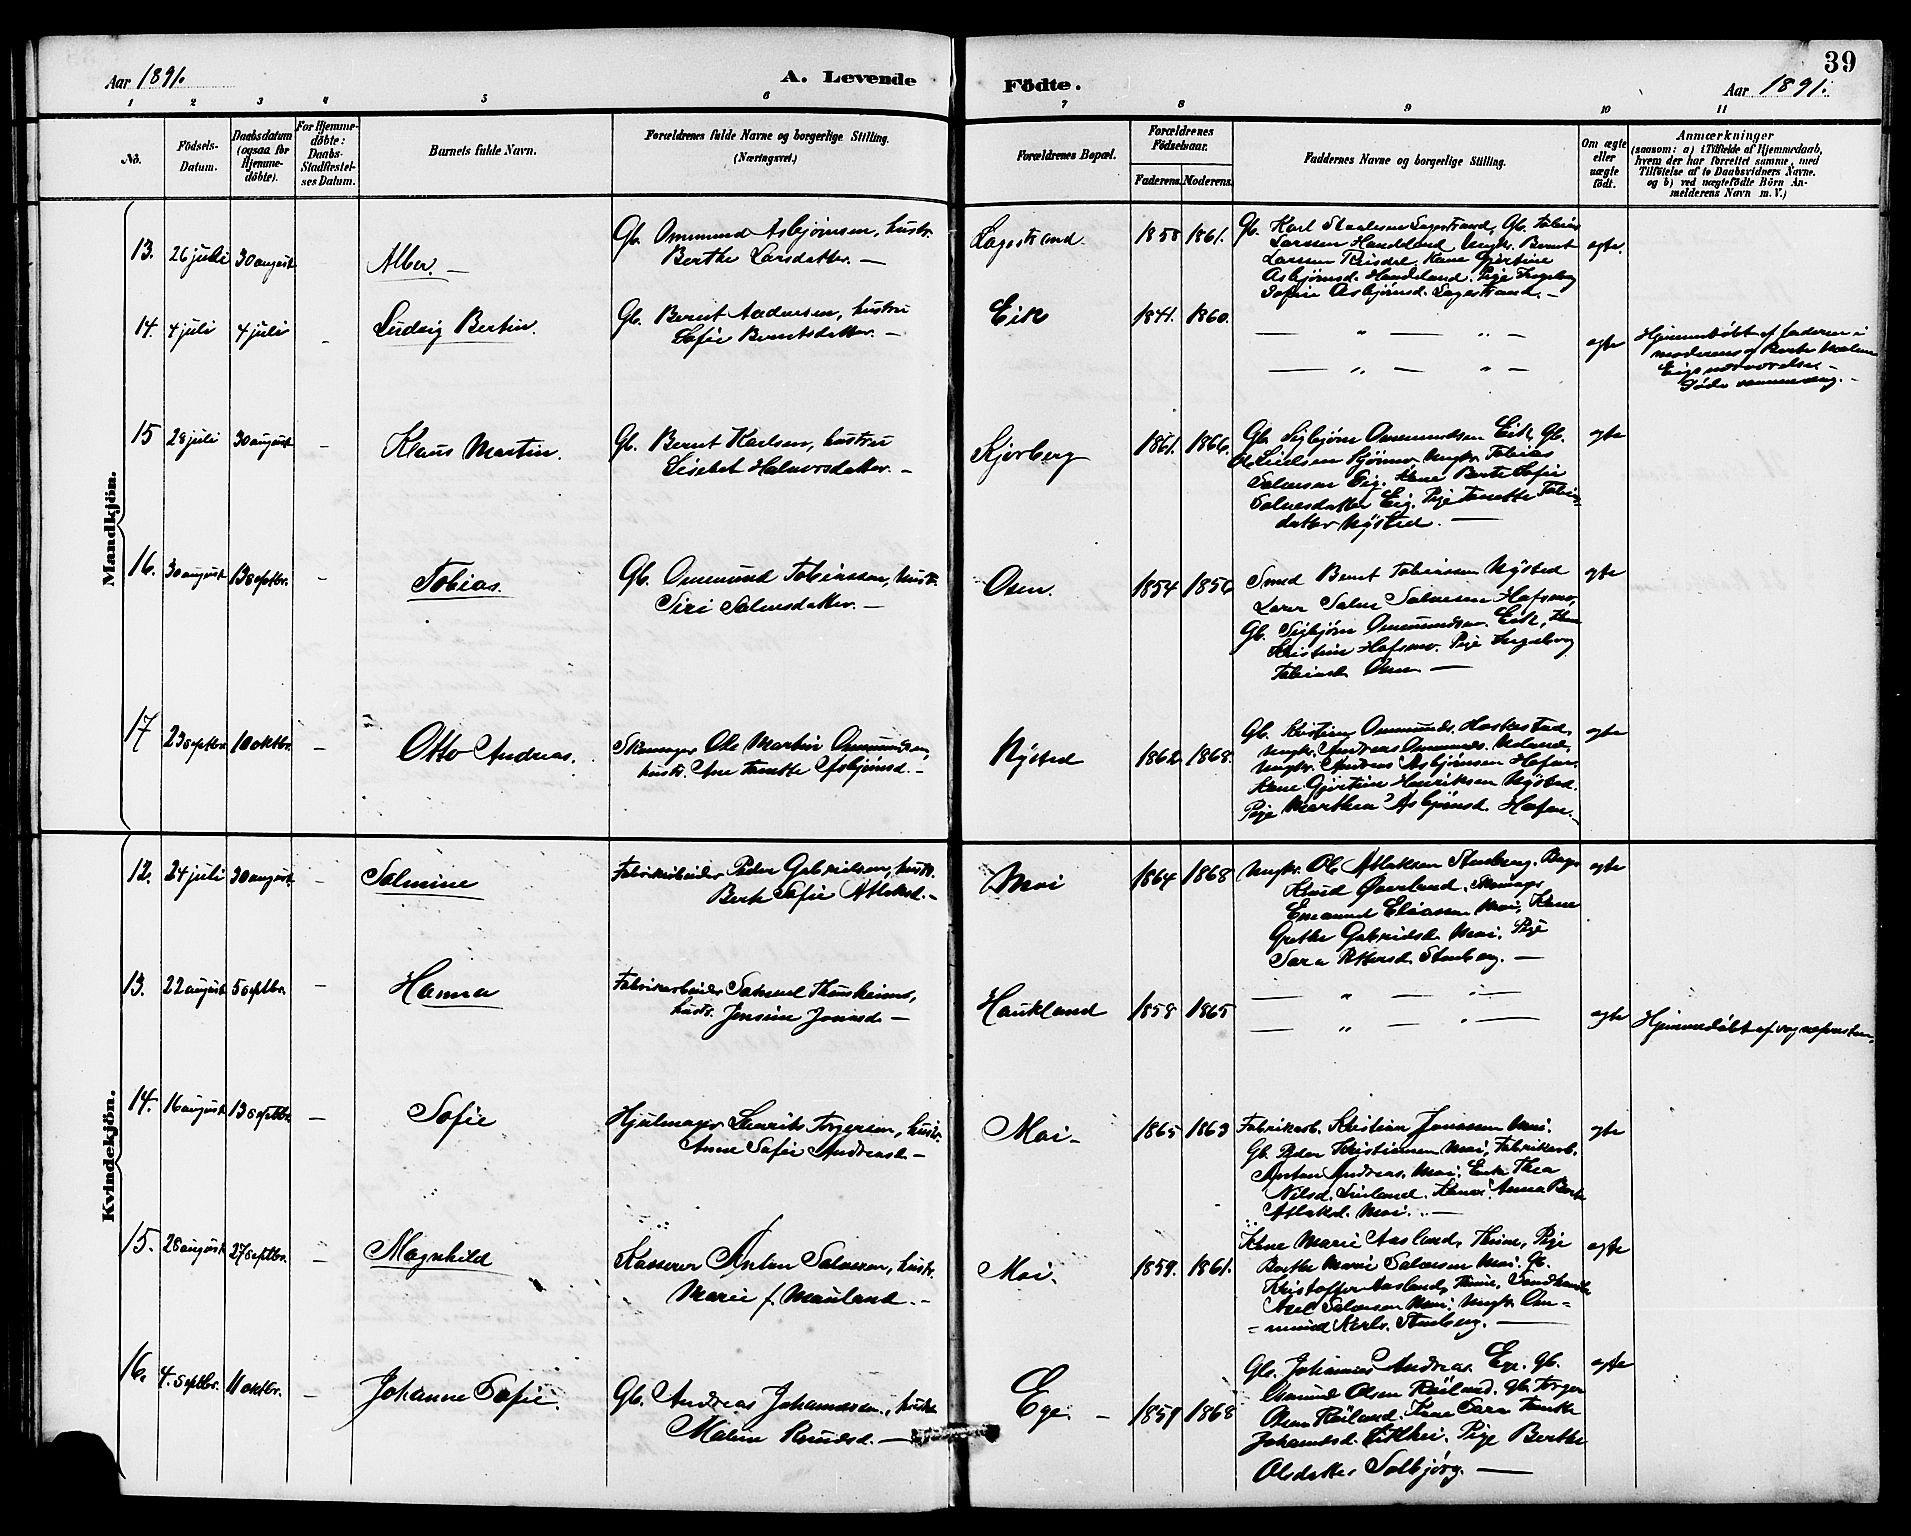 39
Aar 1891. A. Levende Födte. Aar 1891.
1 2 3 4 5 6 7 8 9 10 11
No.
Födsels-
Datum.
Daabsdatum
(ogsaa for
Hjemme-
döbte).
For Hjemme-
döbte:
Daabs-
Stadfæstel-
ses Datum.
Barnets fulde Navn.
Forældrenes fulde Navne og borgerlige Stilling.
(Næringsvei.)
Forældrenes Bopæl.
Forældrenes
Födselsaar.
Faderens. Moderens.
Faddernes Navne og borgerlige Stilling.
Om ægte
eller
uægte
födt.
Anmærkninger
(saasom: a) i Tilfælde af Hjemmedaab,
hvem der har forrettet samme, med
Tilföielse af to Daabsvidners Navne.
og b) ved uægtefödte Börn An-
melderens Navn m. V.)
Mandkjön.
13. 26 juli 30 august Alber. —
Gb. Ommund Asbjørnsen, hustr.
Berthe Larsdatter. —
Lagestrand. 1858 1861.
Larsen Handeland Ungkr. Bernt
Larsen Kane Gjertine
Asbjørnsd. Handeland. Pige Ingeborg
Sofie Asbjørnsd. Lagestrand. —
egte.
14. 4 juli 4 juli - Ludvig Bertin.
Gb. Bernt Andersen, hustru
Sofie Berntsdatter. —
Eik 1841. 1860.
— „ — „ —
— „ — „ —
egte
Hjemmedøbt af faderen i
moderens og Berte Malene
Eigs nærværelse. —
Døde samme dag. —
15 28 juli 30 august - Klaus Martin.
Gb. Bernt Karlsen, hustru
Lisebet Halvorsdatter. —
Kjørberg 1861. 1866.
Gb. Sigbjørn Ommundsen Eik, Gb.
Ungkr. Tobias
Salvesen Eig. Kone Berte Sofie
Salvesdatter Eig. Pige Tanette Tobias-
datter Nysted. —
egte
16. 30 august 13 septbr. - Tobias.
Gb. Ommund Tobiassen, hustr.
Siri Salvesdatter. —
Osen. 1854 1856
Smed Bernt Tobiassen Nysted
Lærer Salve Salvesen Hafsmo,
Gb. Sigbjørn Ommundsen Eik, Kone
Kristine Hafsmo. Pige Ingeborg
Tobiasd. Osen —
egte
17 23 septbr. 18 oktbr. - Otto Andreas.
Skomager Ole Martin Ommundsen,
hustr. Ane Tanette Asbjørnsd. —
Nysted 1862 1868.
Gb. Kristian Ommunds. Haskestad,
Ungkr. Andreas Ommunds. Ueland,
Ungkr. Andreas Asbjørnsen Hafsm.
Kone Gjertine Henriksen Nysted.
Pige Marthea Asbjørnsd. Hafsm. —
egte
Kvindekjön.
12. 24 juli 30 august. - Salmine
Fabrikarbeider Peder Gabrielsen, hustr.
Berte Sofie Atlaksd. —
Moi 1864 1868
Ungkr. Ole Atlaksen Stenberg. Bager
Knud Øverland. Skomager
Emanuel Eliassen Moi, Kone
Grethe Gabrielsd. Moi. Pige
Sara Pettersd. Stenberg. —
egte
13. 22 august 5 septbr. - Hanna
Fabrikarbeider Samuel Thunheim,
hustr. Jensine Jonasd. —
Haukland 1858 1865
— „ — „ —
— „ — „ —
egte
Hjemmedøbt af sognepresten.
14. 16 august 13 septbr. — Sofie
Hjulmager Laurits Torgersen, hustr.
Anne Sofie Andreasd. —
Moi - 1865 1863
Fabrikarb. Kristian Jonassen Moi.
Gb. Peder Kristiansen Moi, Fabrikarb.
Anton Andreas. Moi. Enke Thea
Nilsd. Kone Anna Berte
Atlaksd. Moi. —
egte
15. 28 august 27 septbr. — Magnhild
Kasserer Anton Salvesen, hustr.
Marie f. Mauland. —
Moi. 1859. 1861.
Kone Marie Aasland, Thime, Pige
Berthe Marie Salvesen Moi. Gb.
Kristoffer Aasland, Thime, Landhandler
Axel Salvesen Moi. Ungkr. Om-
- mund Karls. Stenberg. —
egte
16. 4. septbr. 11 oktbr. — Johanne Sofie.
Gb. Andreas Johannessen, hustru
Maline Knudsd. —
Ege. — 1859 1868
Gb. Johannes Andreas. Ege. Gb.
Osmund Olsen Røiland. Gb. Torger
Olsen Røiland. Kone Sara Tanette
Johannesd. Eikhei. Pige Berthe
Olsdatter Solbjørg. —
egte